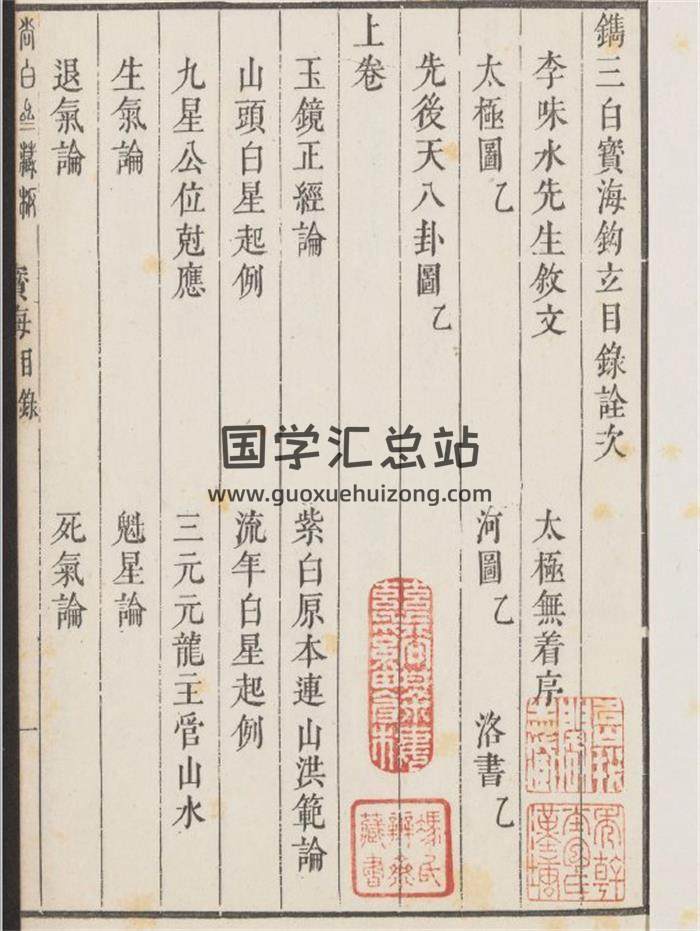 鐫三白寶海鈎玄目錄詮次
李味水先生敘文 太極無着序
太極圖乙 河圖乙 洛書乙
先後天八卦圖乙
上卷
玉鏡正經論 紫白原本連山洪範論
山頭白星起例 流年白星起例
九星公位尅應 三元元龍主管山水
生氣論 魁星論
退氣論 死氣論
尚白 藏板 寶海目錄 一
国学汇总站
www.guoxuehuizong.com
馮氏辨齋藏書